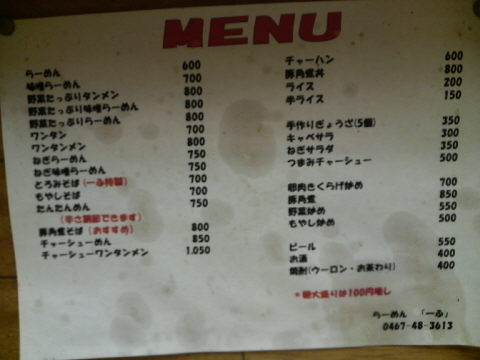 MENU
らーめん 600
味噌らーめん 700
野菜たっぷりタンメン 800
野菜たっぷり味噌らーめん 800
野菜たっぷりらーめん 800
ワンタン 700
ワンタンメン 800
ねぎらーめん 750
ねぎ味噌らーめん 750
とろみそば(一ふ特製) 700
もやしそば 700
たんたんめん 750
(辛さ調節できます)
豚角煮そば(おすすめ) 800
チャーシューめん 850
チャーシューワンタンメン 1.050
チャーハン 600
豚角煮丼 800
ライス 200
半ライス 150
手作りぎょうざ(5個) 350
キャベサラ 300
ねぎサラダ 350
つまみチャーシュー 500
卵肉きくらげ炒め 700
豚角煮 850
野菜炒め 550
もやし炒め 500
ビール 550
お酒 400
焼酎(ウーロン・お茶わり) 400
*麺大盛りは100円増し
らーめん 「一ふ」
0467-48-3613